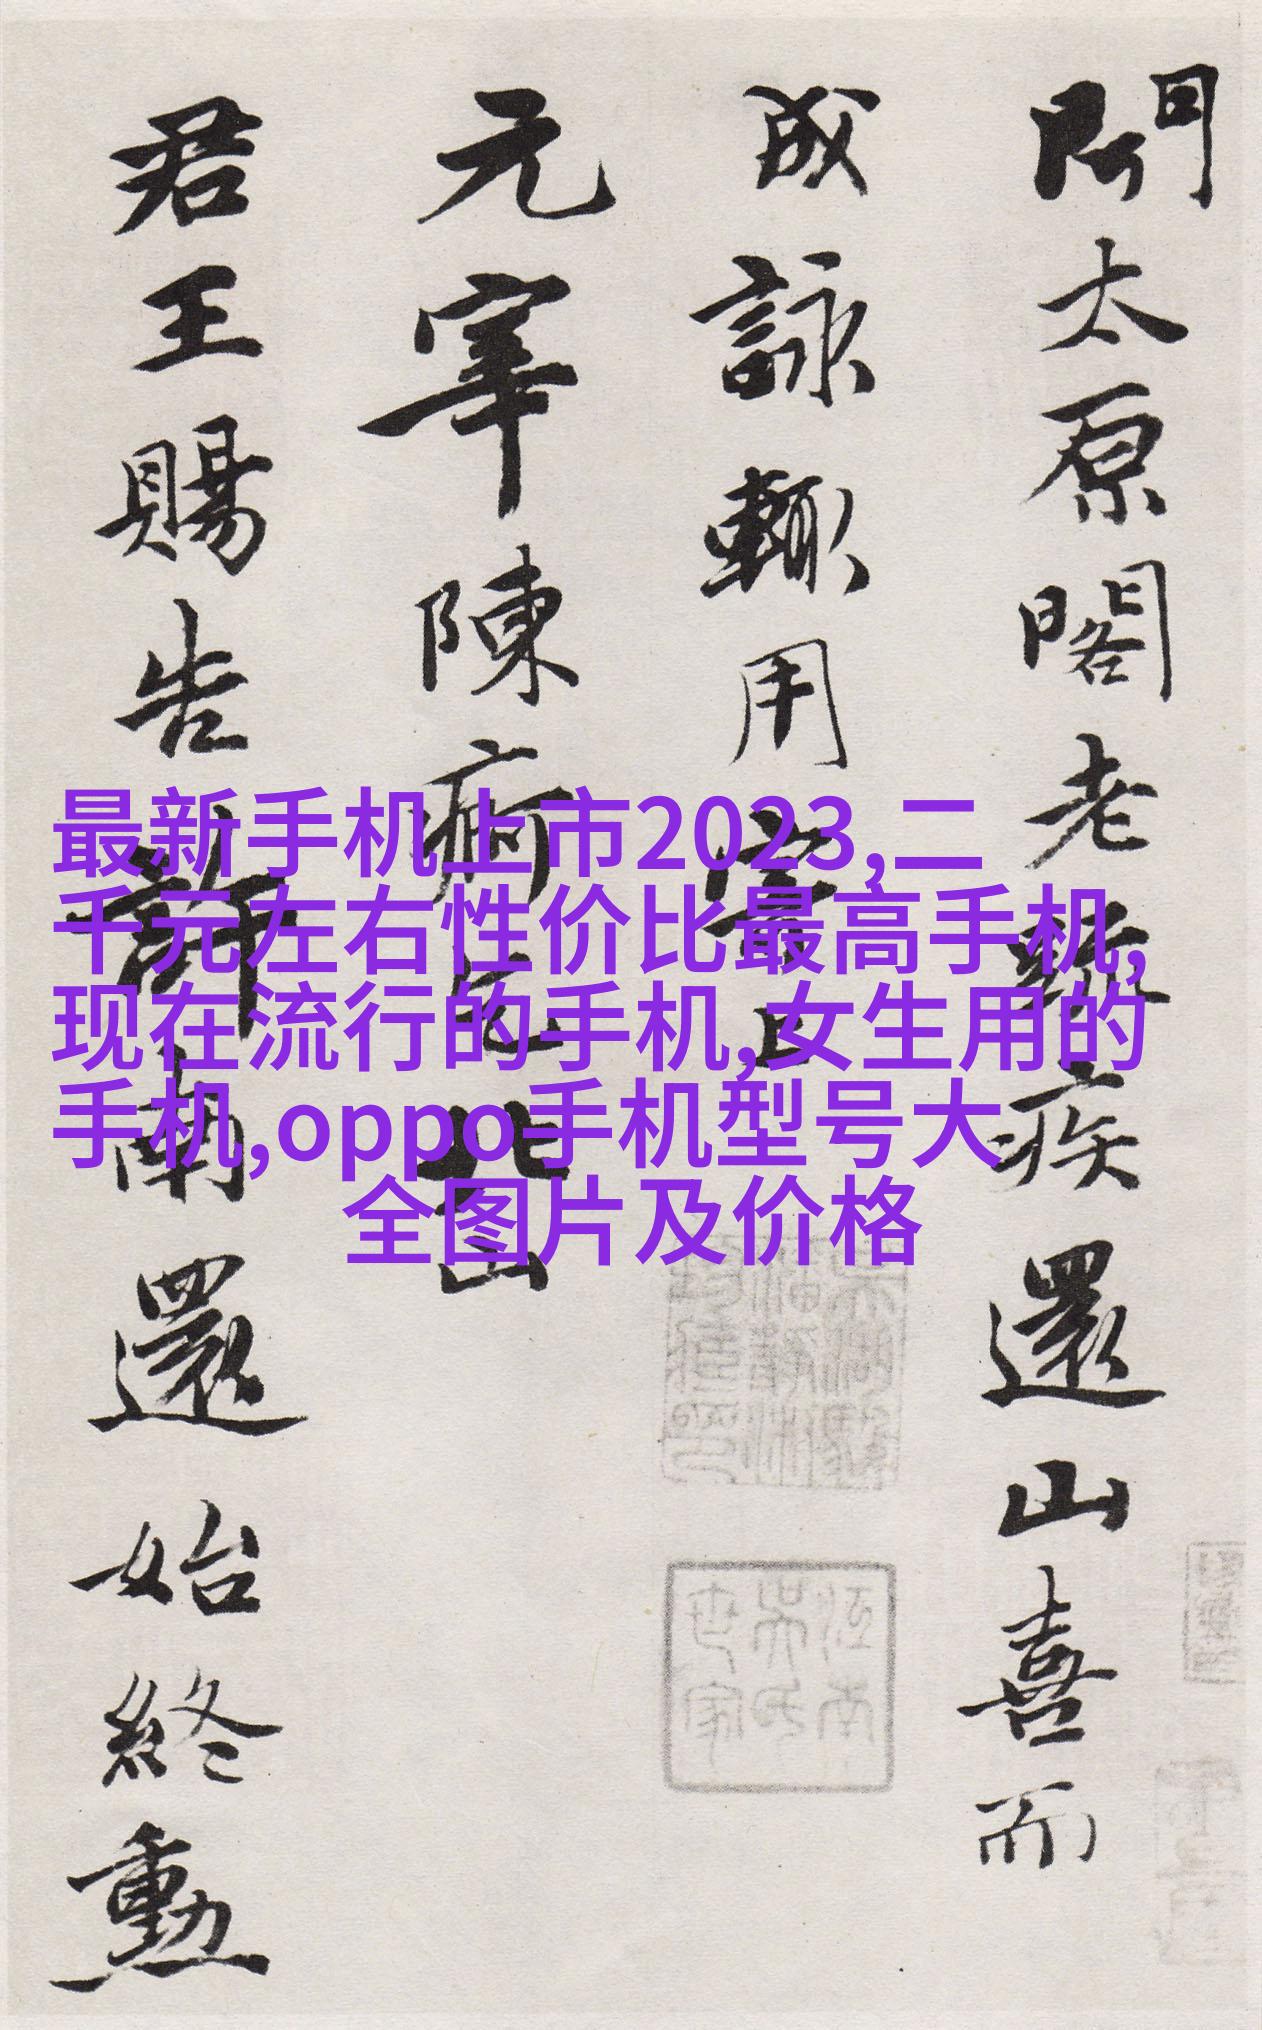 聞太原閣老疏疾還山喜而
成詠輒用寄上
元宰陳病乞
君王賜告
南還始終勳
最新手机上市2023,二
千元左右性价比最高手机,
现在流行的手机,女生用的
手机,oppo手机型号大
全图片及价格
江南
吳氏
世家